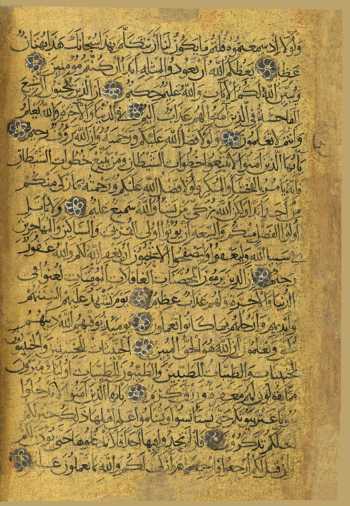 ولولا إذ سمعتموه قلتم ما يكون لنا أن نتكلم بهذا سبحانك هذا بهتان
عظيم يعظكم الله أن تعودوا لمثله أبدا إن كنتم مؤمنين
ويبين الله لكم الآيات والله عليم حكيم إن الذين يحبون أن تشيع
الفاحشة في الذين آمنوا لهم عذاب أليم في الدنيا والآخرة والله يعلم
وأنتم لا تعلمون ولولا فضل الله عليكم ورحمته وأن الله رؤف رحيم
يا أيها الذين آمنوا لا تتبعوا خطوات الشيطان ومن يتبع خطوات الشيطان
فإنه يأمر بالفحشاء والمنكر ولولا فضل الله عليكم ورحمته ما زكى منكم
من أحد أبدا ولكن الله يزكي من يشاء والله سميع عليم ولا يأتل
أولوا الفضل منكم والسعة أن يؤتوا أولي القربى والمساكين والمهاجرين
في سبيل الله وليعفوا وليصفحوا ألا تحبون أن يغفر الله لكم والله غفور
رحيم إن الذين يرمون المحصنات الغافلات المؤمنات لعنوا في
الدنيا والآخرة ولهم عذاب عظيم يوم تشهد عليهم ألسنتهم
وأيديهم وأرجلهم بما كانوا يعملون يومئذ يوفيهم الله دينهم
الحق ويعلمون أن الله هو الحق المبين الخبيثات للخبيثين والخبيثون
للخبيثات والطيبات للطيبين والطيبون للطيبات أولئك مبرؤن
مما يقولون لهم مغفرة ورزق كريم يا أيها الذين آمنوا لا تدخلوا
بيوتا غير بيوتكم حتى تستأنسوا وتسلموا على أهلها ذلكم خير لكم
لعلكم تذكرون فإن لم تجدوا فيها أحدا فلا تدخلوها حتى يؤذن لكم
وإن قيل لكم ارجعوا فارجعوا هو أزكى لكم والله بما تعملون عليم